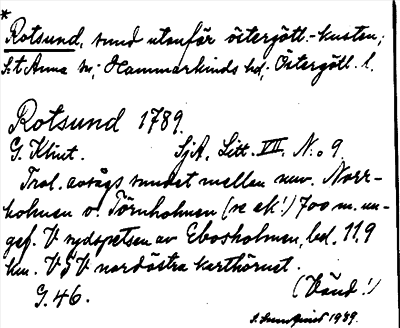 *
Rotsund, sund utanför östergötl.-kusten;
S:t Anna sn; Hammarkinds hd; Östergötl. l.
Rotsund 1789.
G. Klint. SjA, Litt. VII, N:o 9
Trol. avsågs sundet mellan nuv. Norr-
holmen o. Törnholmen (se ek!) 700 m. un-
gef. V sydspetsen av Ebosholmen, bel. 11,9
km. VSV nordöstra karthörnet.
G. 46. (Vänd!)
S. 1939.